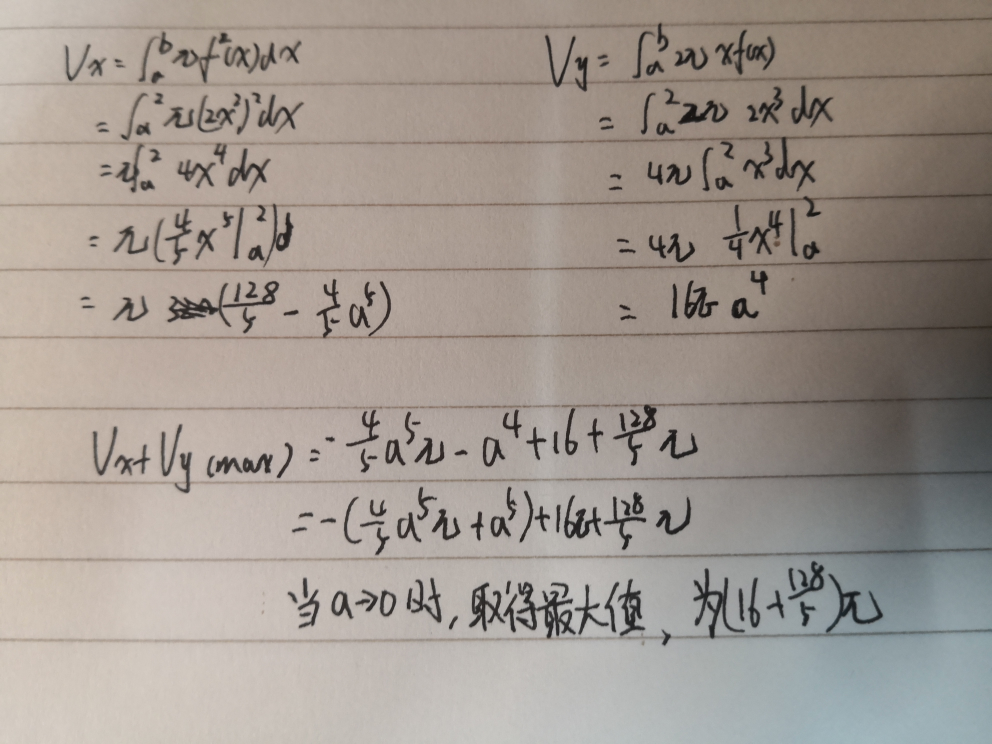 Vx = ∫_a^b π f²(x)dx
= ∫_a^2 π(2x²)²dx
= π∫_a^2 4x⁴dx
= π(4/5 x⁵|_a^2)
= π (128/5 - 4/5 a⁵)
Vy = ∫_a^b 2π xf(x)
= ∫_a^2 2π 2x³dx
= 4π∫_a^2 x³dx
= 4π 1/4 x⁴|_a^2
= 16π- a⁴
Vx+Vy (max) = -4/5 a⁵π - a⁴ + 16 + 128/5 π
= -(4/5 a⁵π + a⁵) + 16π + 128/5 π
当 a→0 时, 取得最大值, 为(16 + 128/5)π